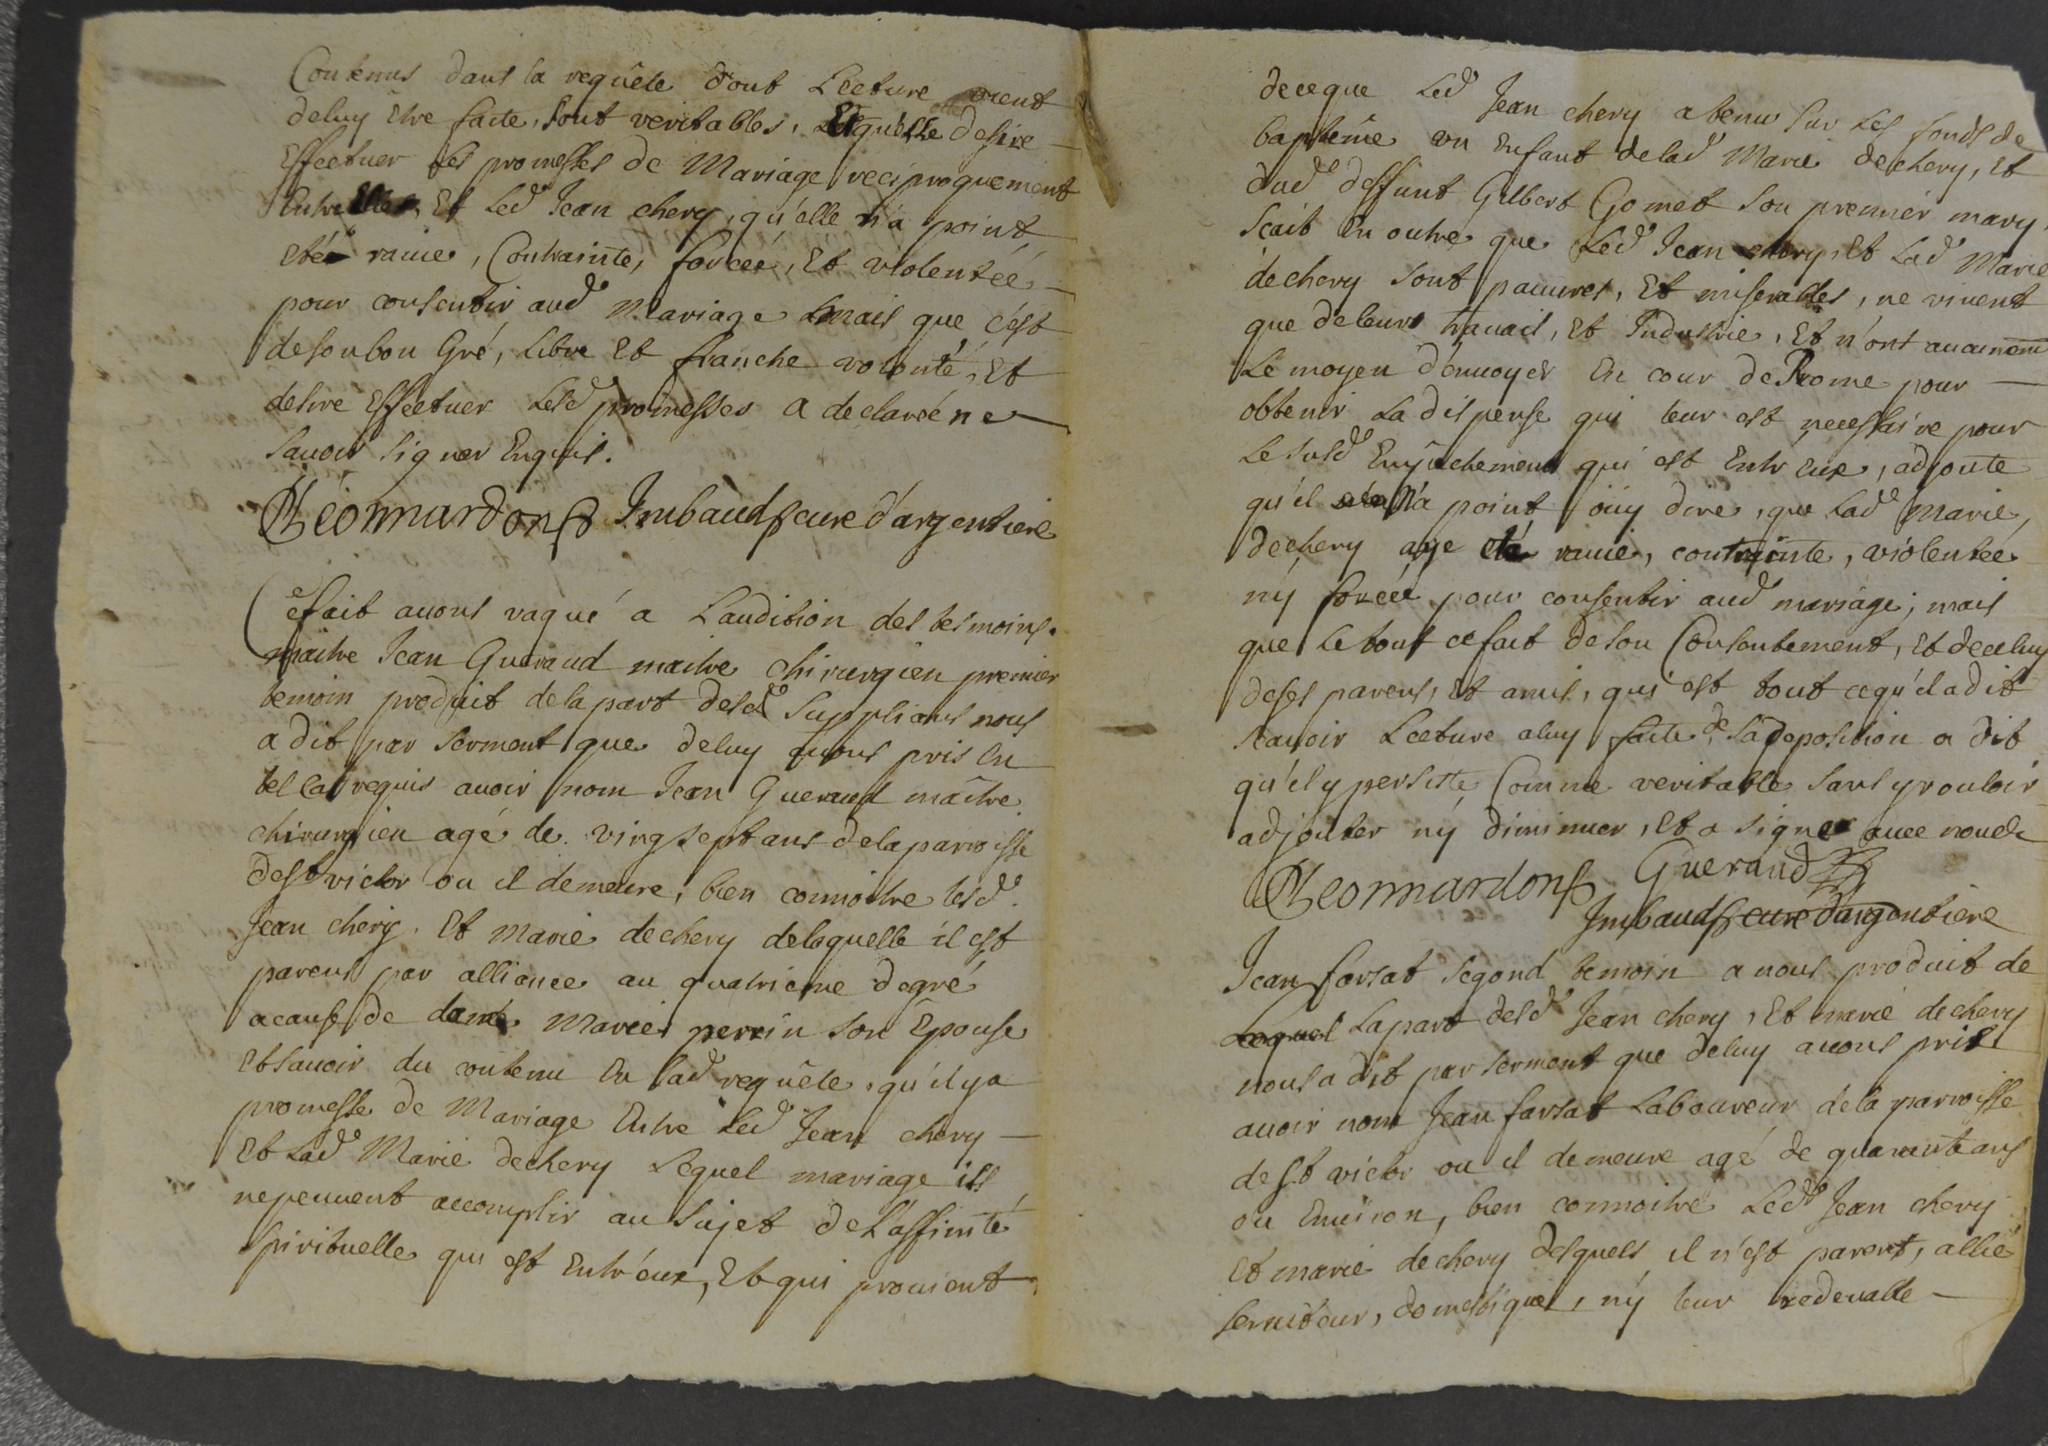 Contenus dans la requête dont Lecture vient
deluy être faite, sont veritables, Et qu'elle desire
Effectuer les promesses de Mariage reciproquement
Entre Elle, Et Led Jean chery, qu'elle n'a point
été ravie, Contrainte, forcée, Et violentée
pour consentir aud Mariage mais que c'est
desonbon Gré, Libre Et franche volonté, Et
desire Effectuer Lesd promesses a declaré ne
savoir signer Enquis.
Leonnardon Imbaud cure d'argentiere
Cefait avons vaqué a Laudition des tesmoins.
maitre Jean Gueraud maitre chirurgien premier
temoin produit delapart desd supplians nous
a dit par serment que deluy avons pris En
tel Cas requis avoir nom Jean Gueraud maître
chirurgien agé de vingsept ans delaparroisse
deSt victor ou il demeure, bien connoitre lesd
Jean chery, Et Marie dechery delaquelle il est
parent par alliance au quatrieme degré
acause de dame Marie perrin son Epouse
Et savoir du contenu En lad requête, qu'il y a
promesse de Mariage Entre Led Jean chery
Et Lad Marie dechery Lequel mariage ils
nepeuvent accomplir au sujet de L'affinité
spirituelle qui est Entr'eux, Et qui provient
deceque Led Jean chery a tenu sur Les fonds de
baptême un Enfant delad Marie dechery, Et
dud deffunt Gilbert Gomet son premier mary,
scait En outre que Led Jean chery Et Lad Marie
dechery sont pauvres, Et miserables, ne vivent
que deleurs travail, Et Industrie, Et n'ont aucunem
Le moyen d'envoyer En cour de Rome pour
obtenir La dispense qui leur est necessaire pour
Le susd Empêchement qui est Entr'eux, adjoute
qu'il n'a point ouy dire, que Lad Marie,
dechery aye été ravie, contrainte, violentée
ny forcée pour consentir aud mariage; mais
que le tout cefait deson Consentement, Et deceluy
deses parens, Et amis, qui est tout cequ'il a dit
scavoir Lecture aluy faite de sa deposition a dit
qu'il y persiste Comme veritable sans y vouloir
adjouter ny diminuer, Et a signé avec nous
Leonnardon Gueraud
Imbaud cure d'argentiere
Jean farsat segond temoin a nous produit de
Lapart desd Jean chery, Et marie dechery
nous a dit par serment que deluy avons pris
avoir nom Jean farsat Laboureur dela parroisse
deSt victor ou il demeure agé de quarante ans
ou Environ, bien connoitre Led Jean chery
Et marie dechery desquels il n'est parent, allié
serviteur, domestique, ny leur redevable